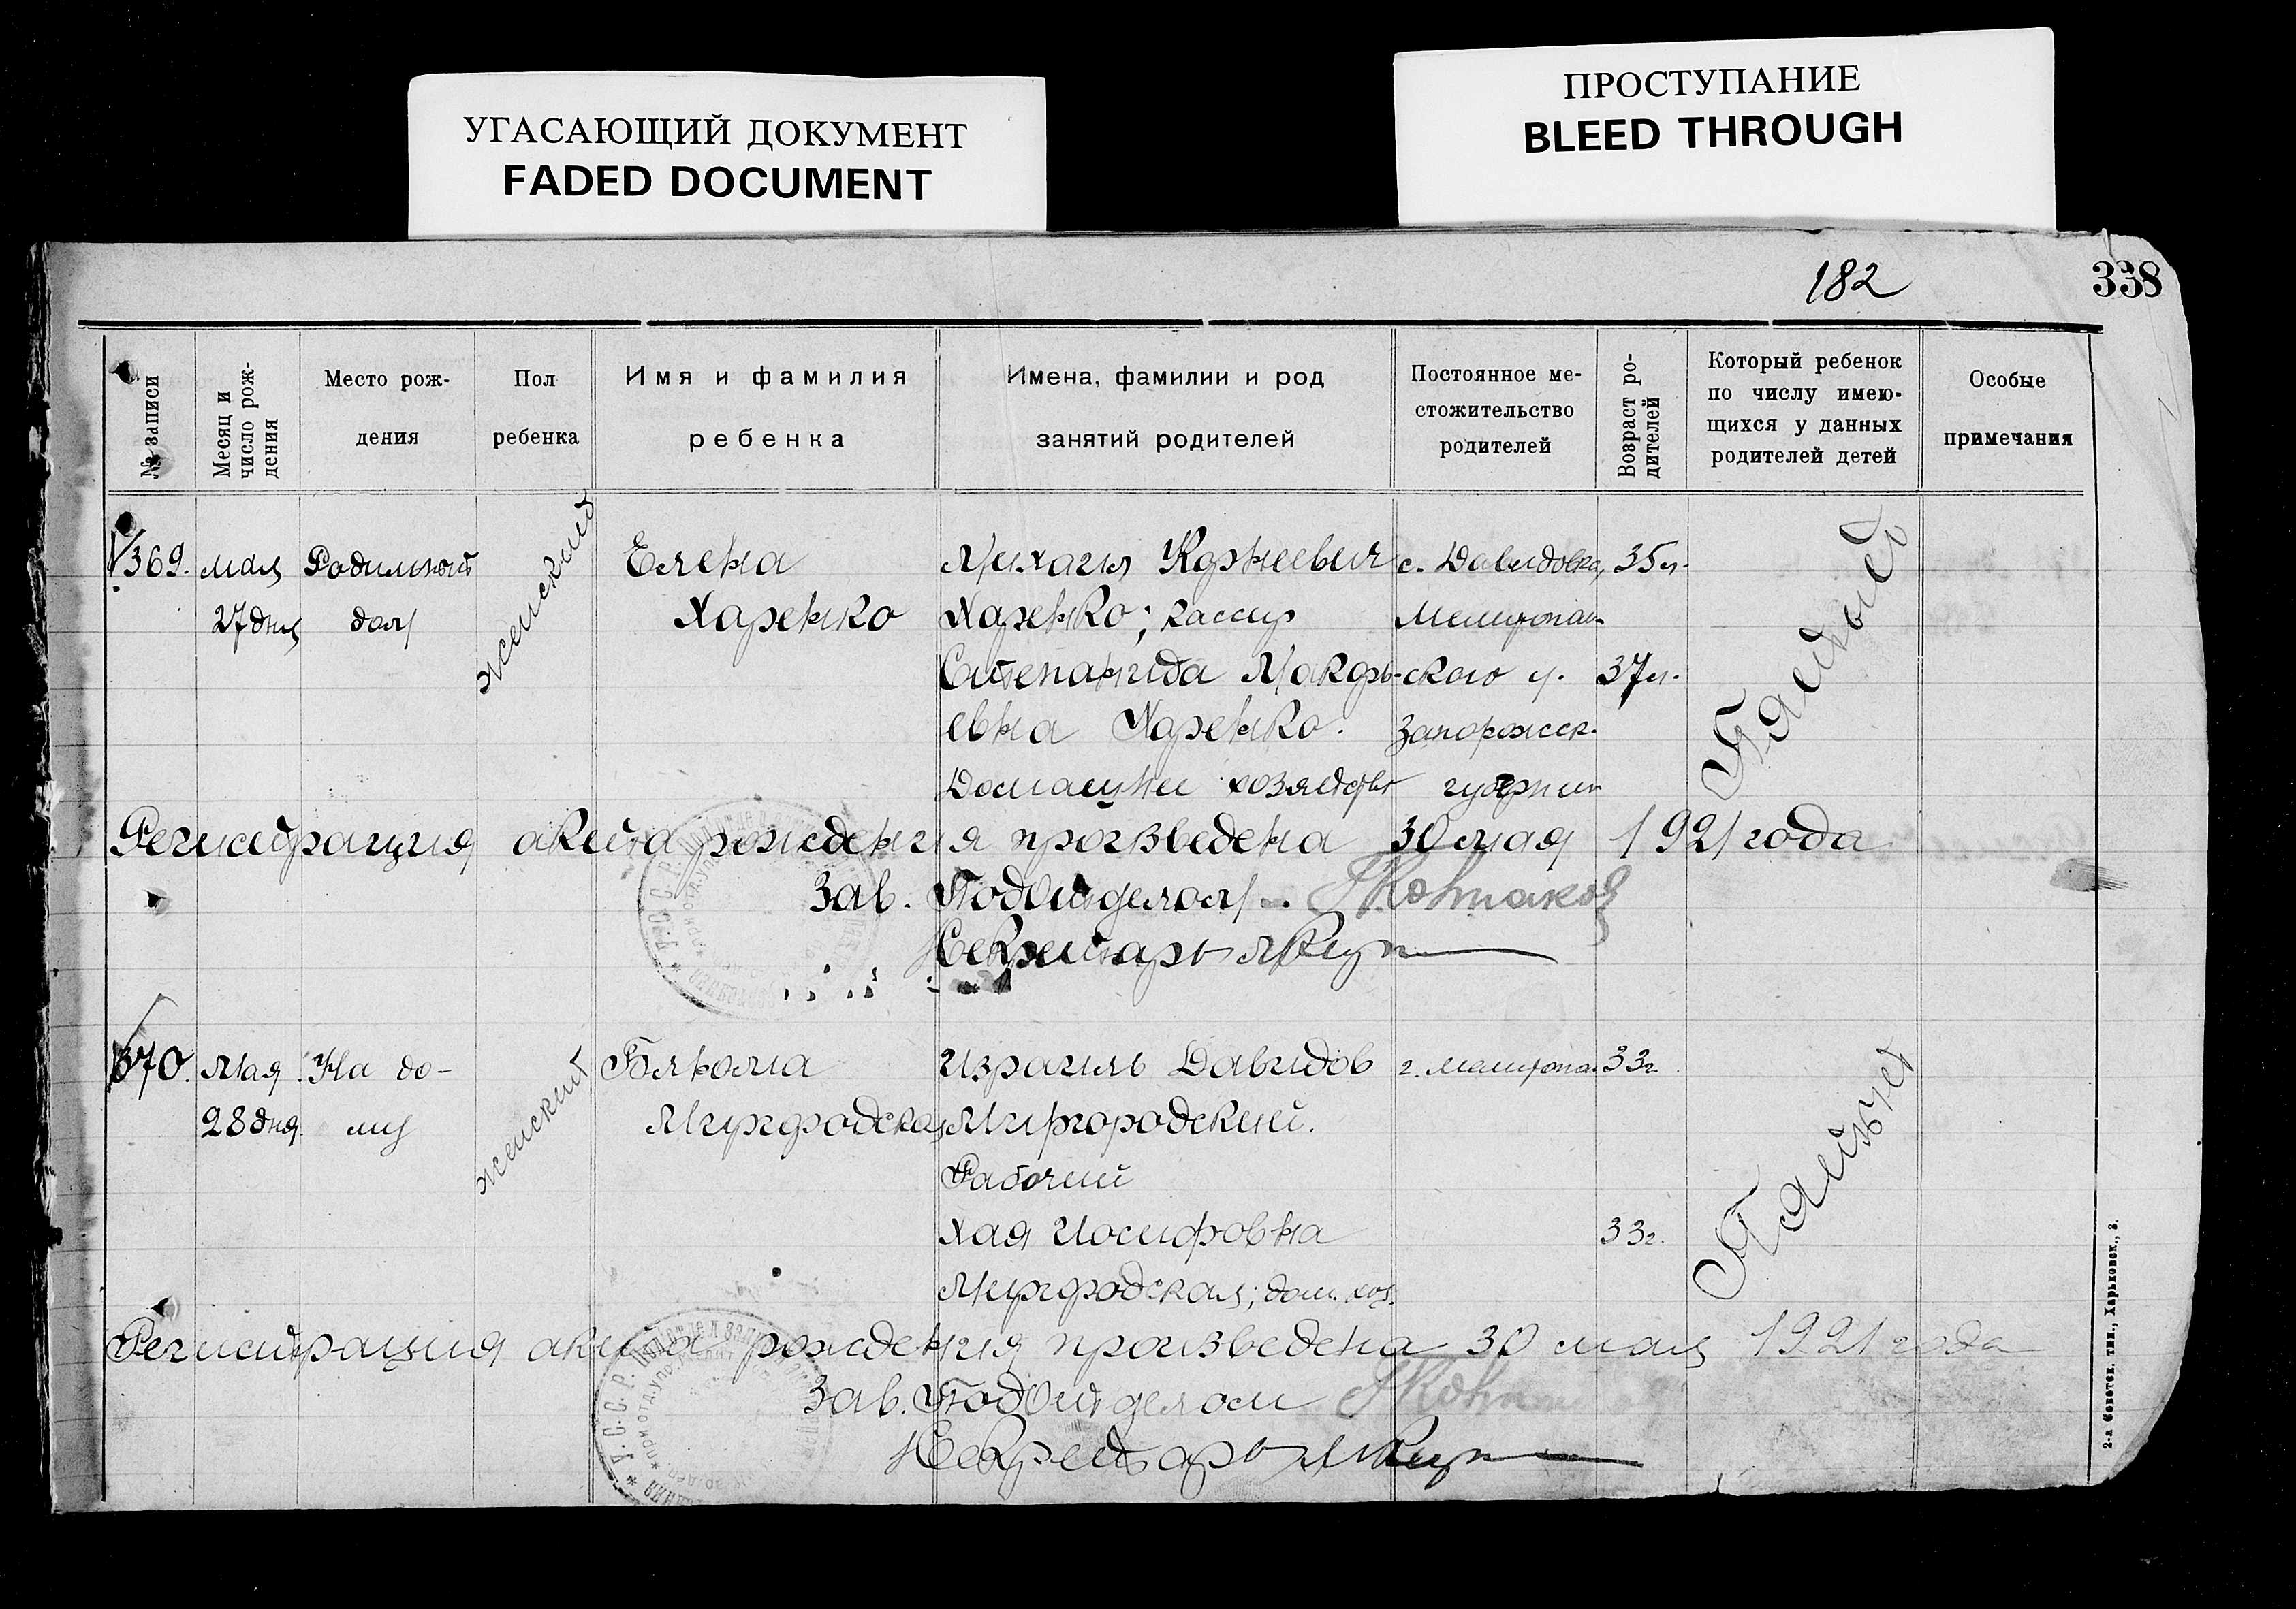 УГАСАЮЩИЙ ДОКУМЕНТ
FADED DOCUMENT
ПРОСТУПАНИЕ
BLEED THROUGH
182
338
№ записи
Месяц и
число рож-
дения
Место рож-
дения
Пол
ребенка
Имя и фамилия
ребенка
Имена, фамилии и род
занятий родителей
Постоянное ме-
стожительство
родителей
Возраст ро-
дителей
Который ребенок
по числу имею-
щихся у данных
родителей детей
Особые
примечания
369.
мая
27 дня
Родильный
дом
женский
Елена
Харенко
Михаил Корнеевич
Харенко; кассир
Степанида Макарь-
евна Харенко.
Домашнее хозяйство
с. Давидовка,
Мелитополь-
ского у.
Запорожск.
губернии
35 л.
37 л.
Пятый
Регистрация акта рождения произведена 30 мая 1921 года
Зав. Подотделом
Секретарь
370.
Мая
28 дня
На до-
му
женский
Блюма
Миргородская
Израиль Давидов
Миргородский.
Рабочий
Хая Иосифовна
Миргородская; дом. хоз.
г. Мелитополь
33 г.
33 г.
Регистрация акта рождения произведена 30 мая 1921 года
Зав. Подотделом
Секретарь
2-я Советск. тип., Харьковск., 2.